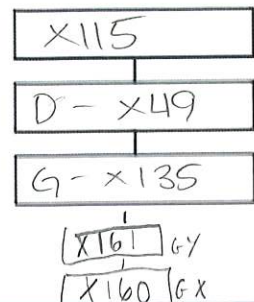 X115
D - X49
G - X135
X161 GY
X160 GX